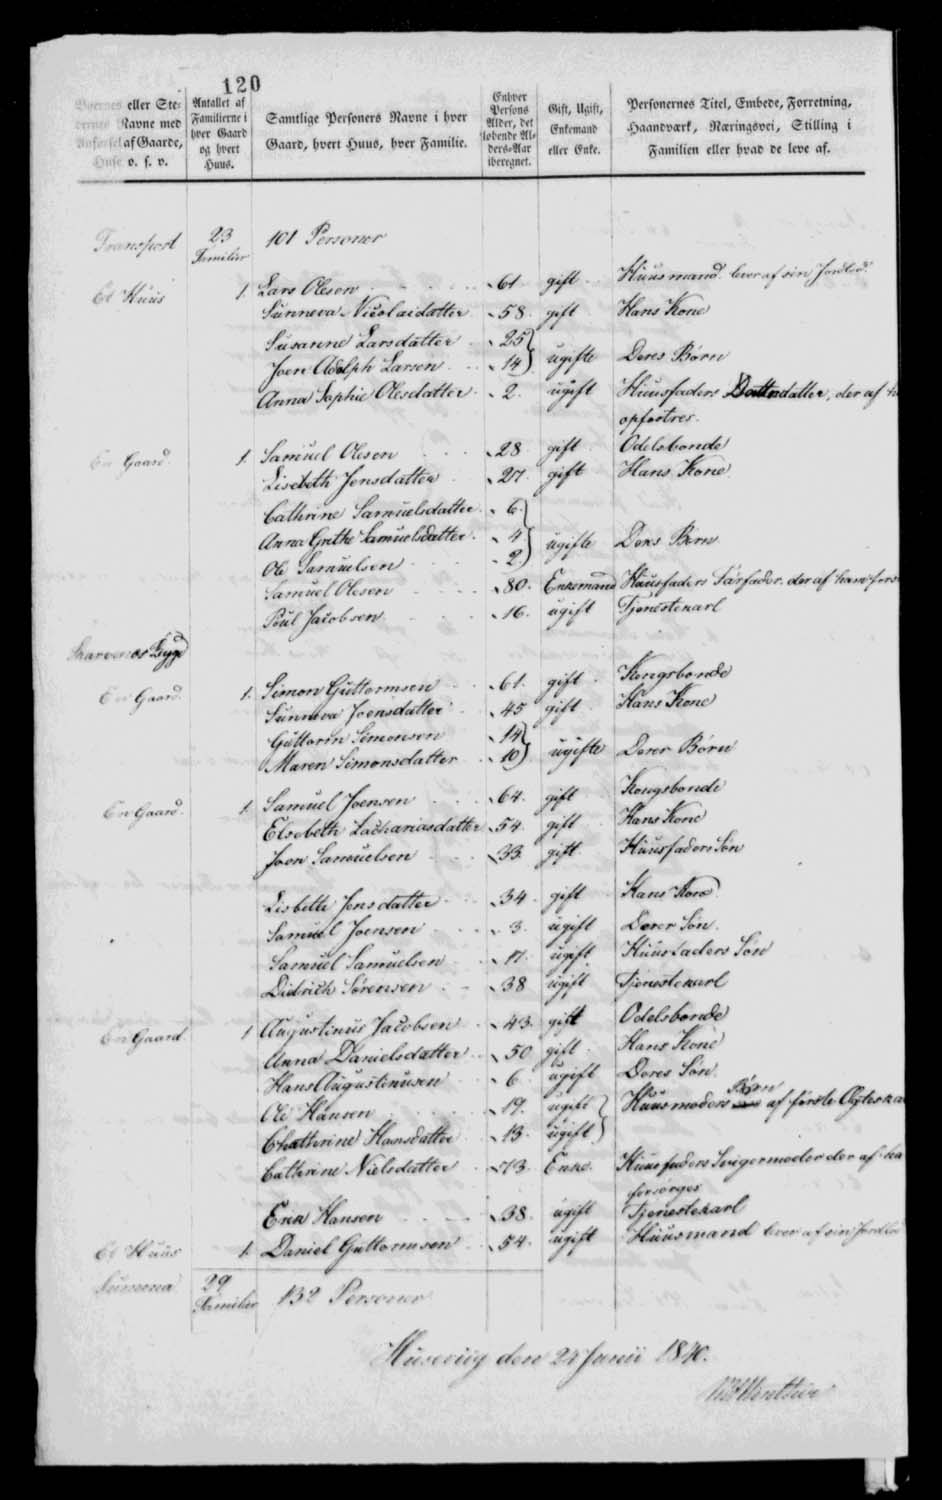 120
Byernes eller Ste- Antallet af Enhver
dernes Navne med Familierne i Samtlige Personers Navne i hver Persons Gift, Ugift, Personernes Titel, Embede, Forretning,
Anførsel af Gaarde, hver Gaard Gaard, hvert Huus, hver Familie. Alder, det Enkemand Haandværk, Næringsvei, Stilling i
Huse o. s. v. og hvert løbende Al- eller Enke. Familien eller hvad de leve af.
Huus. ders-Aar
iberegnet.
Transport 23 Familier 101 Personer
Et Huus 1. Lars Olesen 61. gift Huusmand. lever af sin Jordlod.
Sunneva Nicolaidatter 58. gift Hans Kone
Susanne Larsdatter 25
Joen Adolph Larsen 14 ugifte Deres Børn
Anna Sophie Olesdatter 2. ugift Huusfaders Datterdatter, der af
opfostres.
En Gaard. 1. Samuel Olesen 28 gift Odelsbonde
Lisebeth Jensdatter 27. gift Hans Kone
Cathrine Samuelsdatter 6.
Anna Grethe Samuelsdatter 4. ugifte Deres Børn
Ole Samuelsen 2
Samuel Olesen 80. Enkemand Huusfaders Farfader. der af ham
Poul Jacobsen 16. ugift Tjenestekarl
Bygd
En Gaard. 1. Simon Guttormsen 61. gift Kongsbonde
Sunneva Joensdatter 45 gift Hans Kone
Guttorm Simonsen 14
Maren Simonsdatter 10 ugifte Derer Børn
En Gaard. 1. Samuel Joensen 64. gift Kongsbonde
Elsebeth Zachariasdatter 54. gift Hans Kone
Joen Samuelsen 33. gift Huusfaders Søn
Lisbeth Jensdatter 34 gift Hans Kone
Samuel Joensen 3. ugift Derer Søn.
Samuel Samuelsen 17. ugift Huusfaders Søn
Didrich Sørensen 38 ugift Tjenestekarl
En Gaard 1 Augustinus Jacobsen 43. gift Odelsbonde
Anna Danielsdatter 50 gift Hans Kone
Hans Augustinusen 6. ugift Deres Søn.
Ole Hansen 19. ugift Huusmoders Børn af første
Chatherine Hansdatter 13. ugift
Cathrine Nielsdatter 73. Enke. Huusfaders Svigermoder der af
forsørges
Erik Hansen 38. ugift Tjenestekarl
Et Huus 1. Daniel Guttormsen 54. ugift Huusmand lever af sin Jordlod
Summa 29 Familier 132 Personer
Huseviig den 24 Junii 1840.